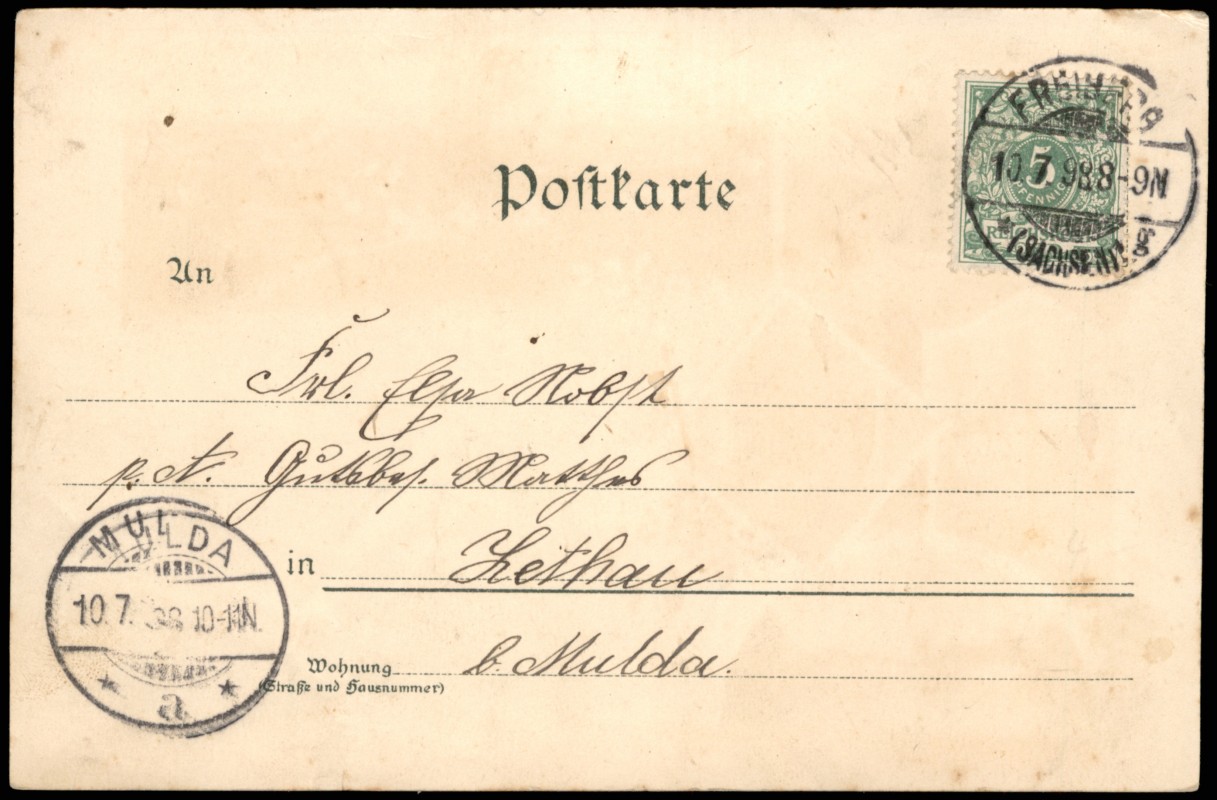 Postkarte
5
PFENNIG
REICHSPOST
FREIBERG
10.7.98 8-9N
*(SACHSEN)1g
An
Frl. Elsa Nobst
p. A. Gutsbes. Matthes
in Zethau
Wohnung b. Mulda.
(Straße und Hausnummer)
MULDA
10.7. 98 10-11N.
* a *